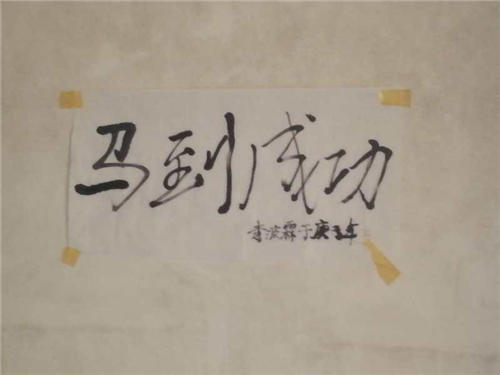 马到成功
李波霖于庚子年